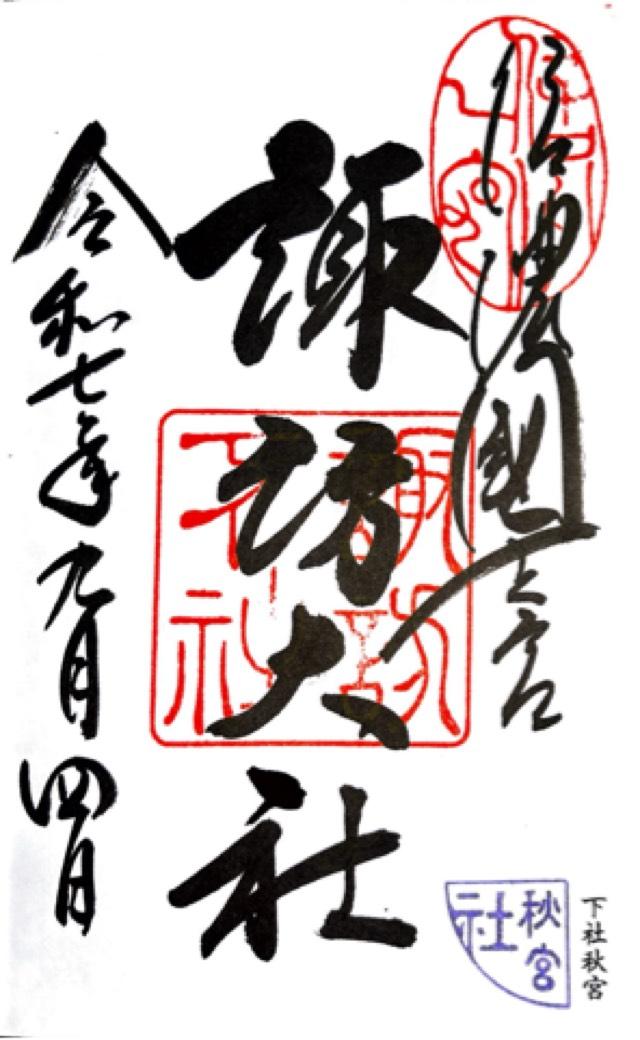 信濃國一之宮
諏訪大社
令和七年九月四日
諏訪
下社
秋宮
社
下社秋宮